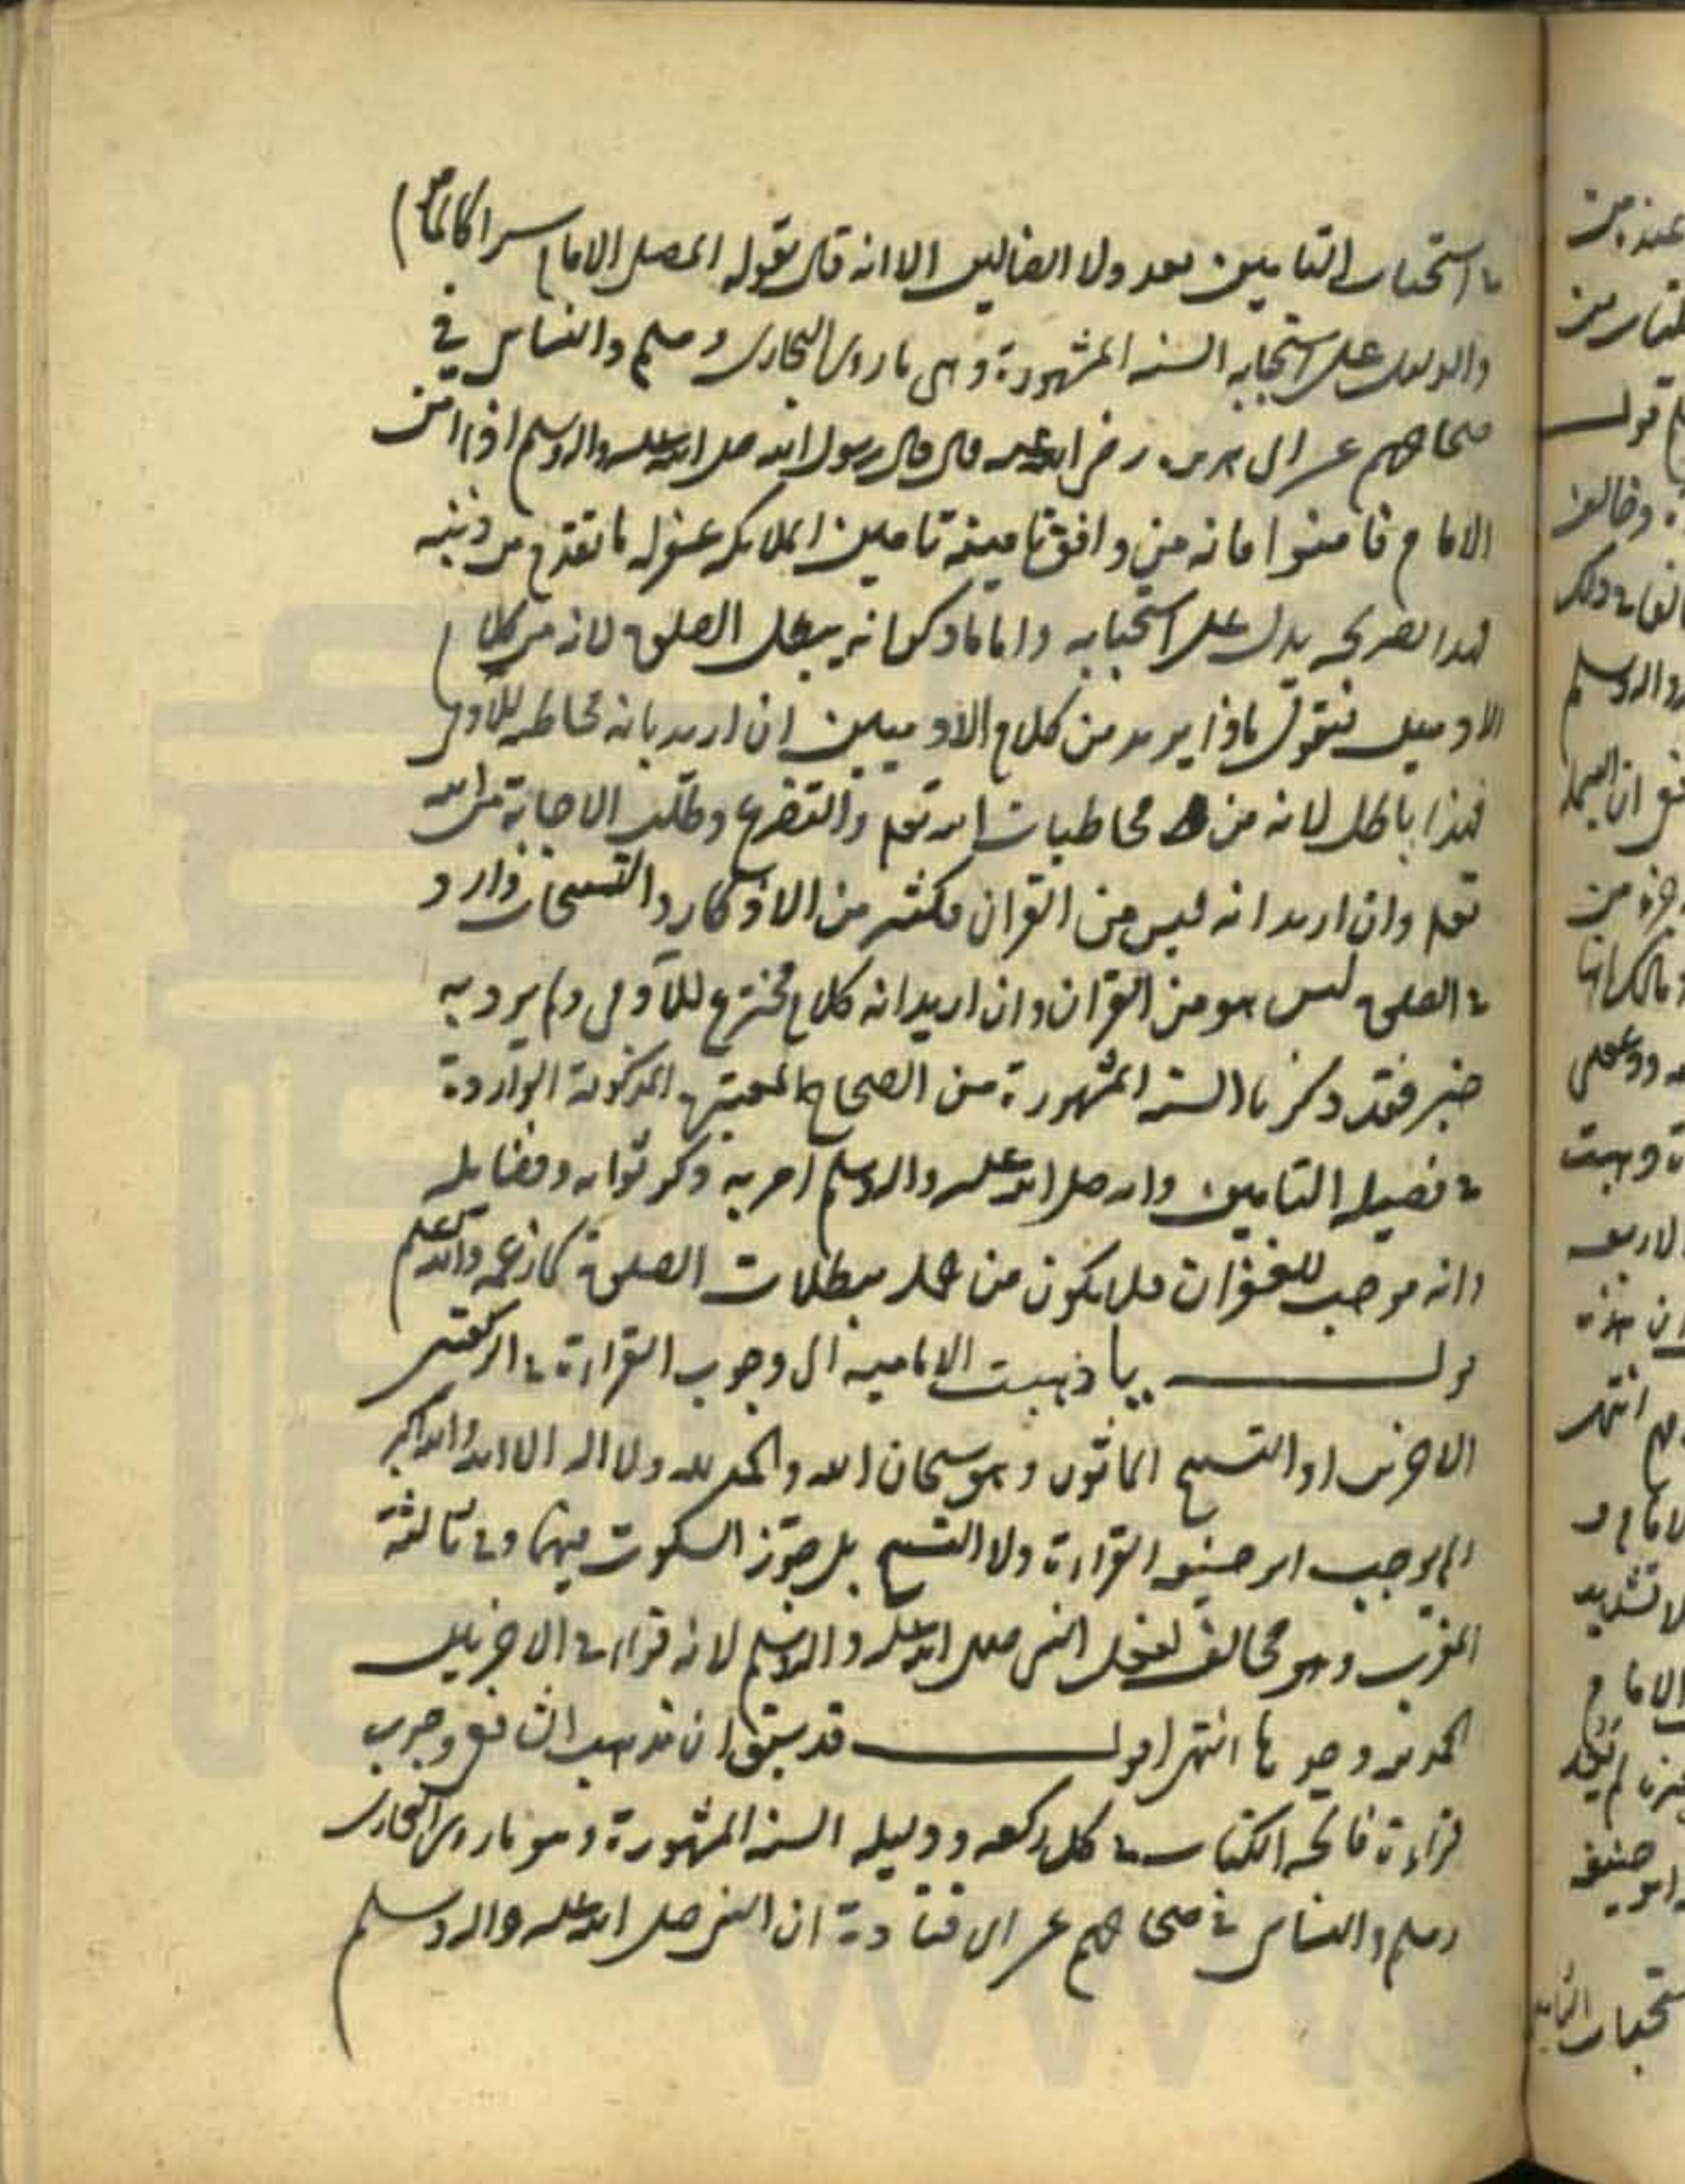 في استحباب التامين بعد ولا الضالين الا انه قال يقوله المصلي الامام سرا كالمام
والدليل على استحبابه السنه المشهورة وهي ما روى البخاري ومسلم والنسائي في
صحاحهم عن ابي هريره رضي الله عنه قال قال رسول الله صلى الله عليه واله وسلم اذا امن
الامام فامنوا فانه من وافق تامينه تامين الملائكه غفر له ما تقدم من ذنبه
فهذا بصريحه يدل على استحبابه واما ما ذكر انه يبطل الصلوة لانه من كلام
الادميين فنقول ماذا يريد من كلام الادميين ان اريد بانه مخاطبه للآدمي
فهذا باطل لانه من مخاطبات الله تعالى والتضرع وطلب الاجابة من الله
تعالى وان اريد انه ليس من القران فكثير من الاذكار والتسبيحات وارد
في الصلوة ليس هو من القران وان اريد انه كلام مخترع للآدمي ولم يرد به
خبر فقد ذكرنا السنه المشهورة من الصحاح المعتبرة المذكورة الواردة
في فضيله التامين وانه صلى الله عليه واله وسلم امر به وذكر ثوابه وفضايله
وانه موجب للغفران فلا يكون من جمله مبطلات الصلوة كما زعمه والله اعلم
قولـــــه يا ذهبت الاماميه الى وجوب القراءة في الركعتين
الاخرتين او التسبيح الماثور وهو سبحان الله والحمد لله ولا اله الا الله والله اكبر
ولم يوجب ابو حنيفه القراءة ولا التسبيح بل جوز السكوت فيهما وفي ثالثة
المغرب وهو مخالف لفعل النبي صلى الله عليه واله وسلم لانه قراء في الاخريين
الحمد وحدها انتهى اقولــــ قد سبق ان مذهب الشافعي وجوب
قراءة فاتحه الكتاب في كل ركعه ودليله السنه المشهورة وهو ما روى البخاري
ومسلم والنسائي في صحاحهم عن ابي قتادة ان النبي صلى الله عليه واله وسلم